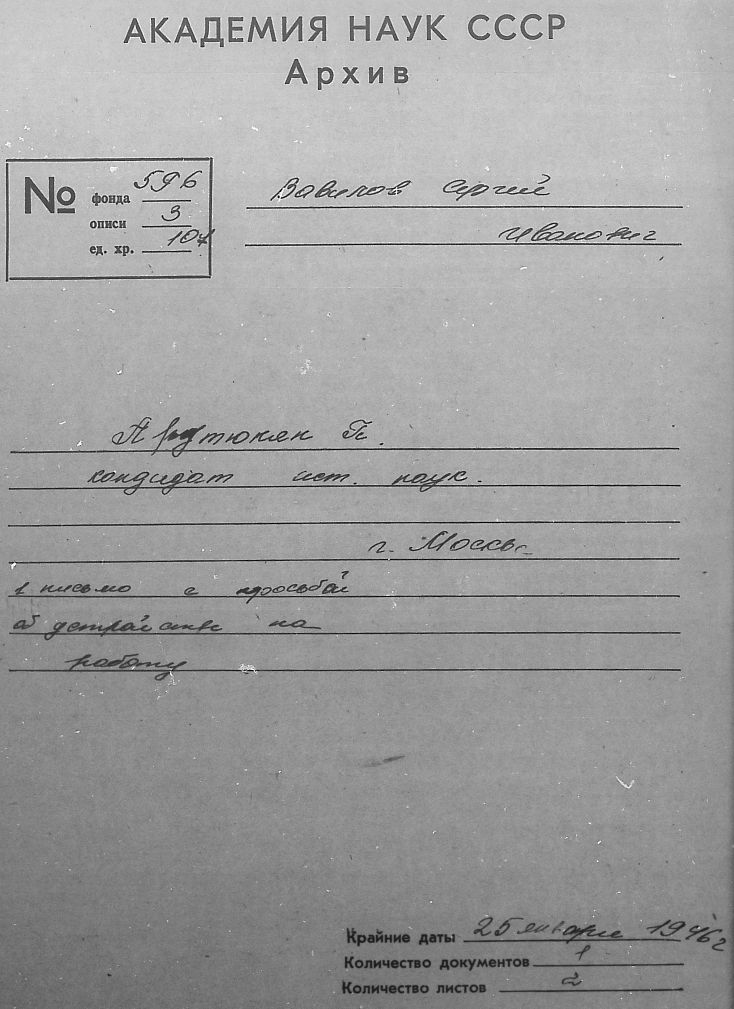 АКАДЕМИЯ НАУК СССР
Архив
№ фонда 596
описи 3
ед. хр. 107
Вавилов Сергей
Иванович
Арутюнян Г.
кандидат ист. наук.
г. Москва
1 письмо с просьбой
об устройстве на
работу
Крайние даты 25 января 1946 г
Количество документов 1
Количество листов 2